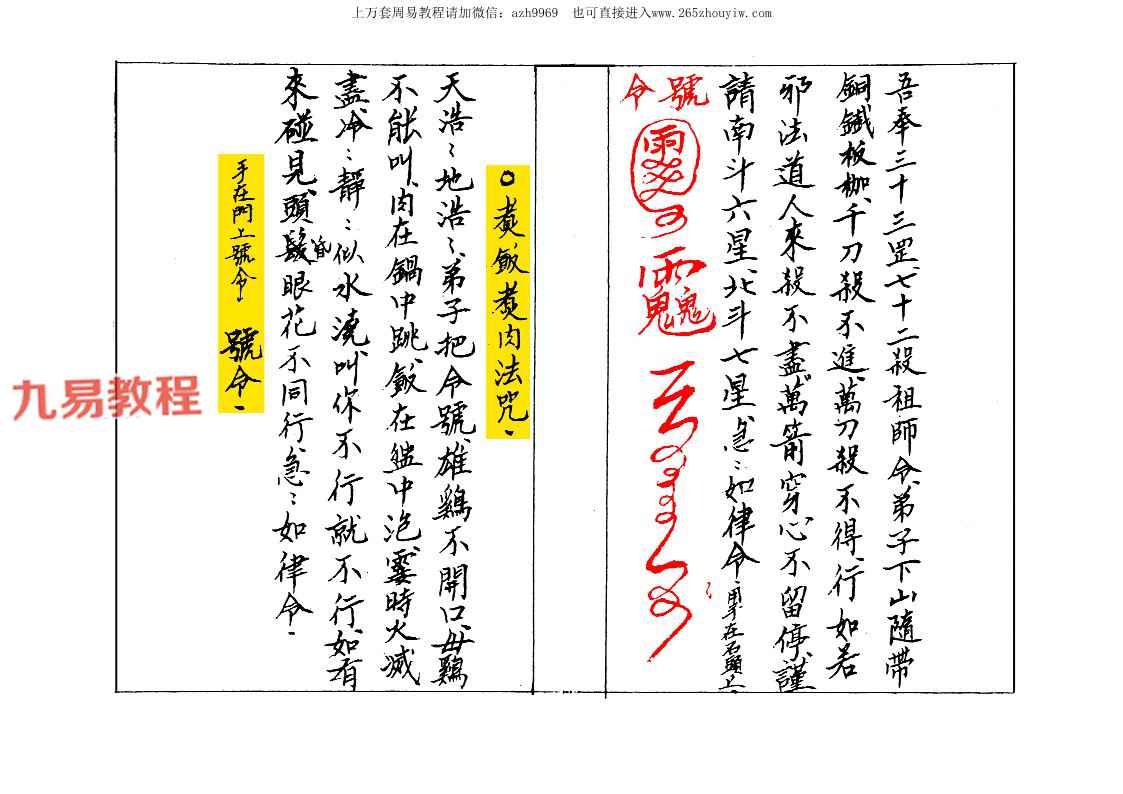 上万套周易教程请加微信：azh9969 也可直接进入www.265zhouyiw.com
吾奉三十三罡、七十二殺祖師令、弟子下山隨帶
銅鐵板枷、千刀殺不進、萬刀殺不得、行如若
邪法道人來殺不盡、萬箭穿心、不留停、謹
請南斗六星、北斗七星、急：如律令、用手在石頭上、
號令
○煮飯煮肉法咒、
天浩：地浩：、弟子把令號、雄鷄不開口、毋鷄
不能叫、肉在鍋中跳、飯在盆中泡、霎時火滅
盡、冷：靜：似水澆、叫你不行就不行、如有
來碰見、頭髮昏眼花不同行、急：如律令、
手在門上號令 號令、
九易教程